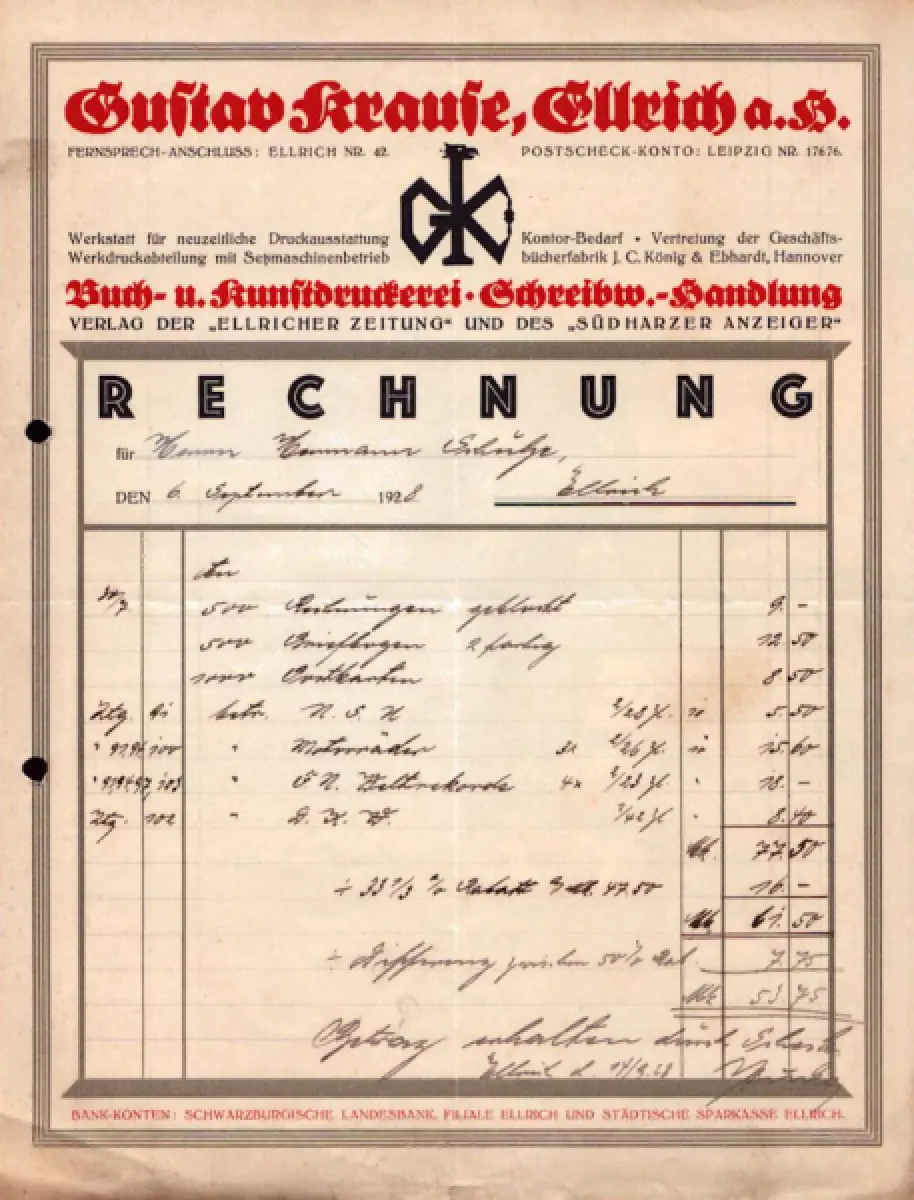 Gustav Krause, Ellrich a. H.
FERNSPRECH-ANSCHLUSS: ELLRICH NR. 42. POSTSCHECK-KONTO: LEIPZIG NR. 17676.
GK
Werkstatt für neuzeitliche Druckausstattung Kontor-Bedarf • Vertretung der Geschäfts-
Werkdruckabteilung mit Setzmaschinenbetrieb bücherfabrik J. C. König & Ebhardt, Hannover
Buch- u. Kunstdruckerei · Schreibw.-Handlung
VERLAG DER „ELLRICHER ZEITUNG" UND DES „SÜDHARZER ANZEIGER"
RECHNUNG
für Herrn Hermann
DEN 6. September 1928 Ellrich
An
500 Rechnungen geblockt 9. -
500 Briefbogen 2 farbig 12 50
1000 Postkarten 8 50
Ztg. 91 betr. N. S. U 5.50
" Motorräder 15 60
" Weltrekorde 18. -
Ztg. 102 " D. K. W. 8.40
M. 77.50
÷ 33 1/3 % Rabatt 47.50 16. -
Mk 61. 50
÷ Differenz zwischen 50 % Rab. 7 75
Mk 53 75
Betrag erhalten durch Scheck
Ellrich d. 14/9.28
BANK-KONTEN: SCHWARZBURGISCHE LANDESBANK, FILIALE ELLRICH UND STÄDTISCHE SPARKASSE ELLRICH.